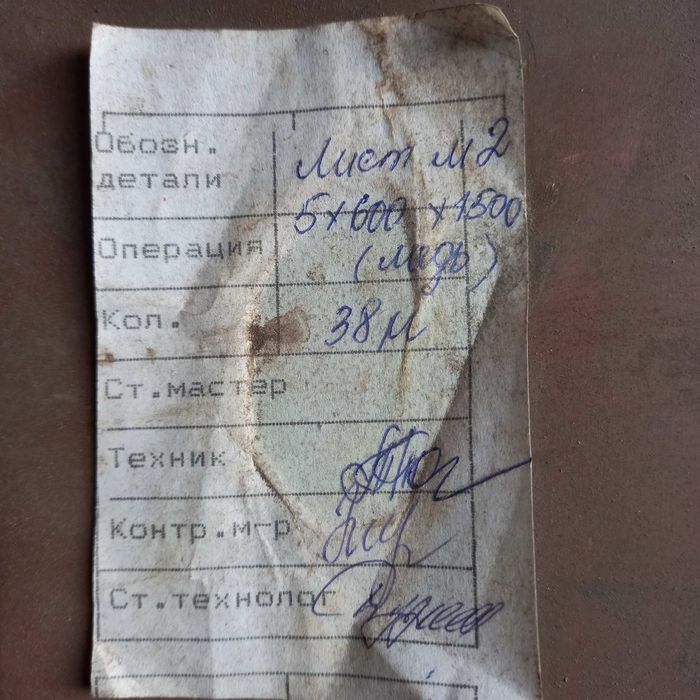 Обозн.
детали
Лист М2
5×600×1500
Операция
(медь)
Кол.
38 м
Ст.мастер
Техник
Контр.м-р
Ст.технолог